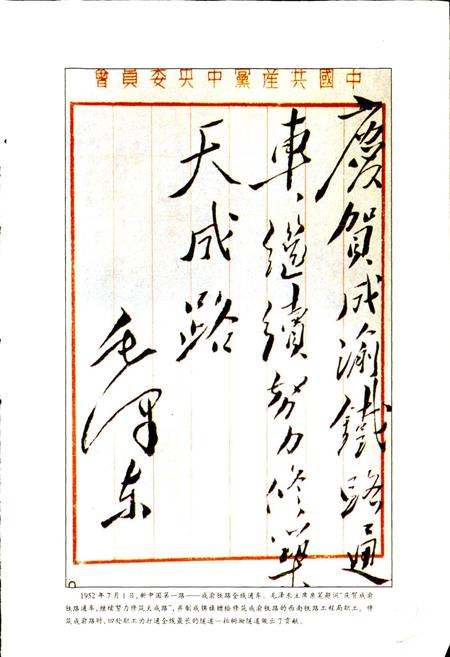 中國共產黨中央委員會
慶賀成渝鐵路通
車、繼續努力修築
天成路
毛澤东
1952年7月1日,新中国第一路——成渝铁路全线通车。毛泽东主席亲笔题词“庆贺成渝
铁路通车,继续努力修筑天成路”,并制成锦旗赠给修筑成渝铁路的西南铁路工程局职工。修
筑成渝路时,四处职工为打通全线最长的隧道—柏树坳隧道做出了贡献。